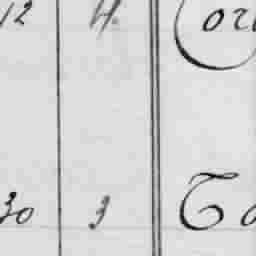 12 4. Cor
30 3 Co